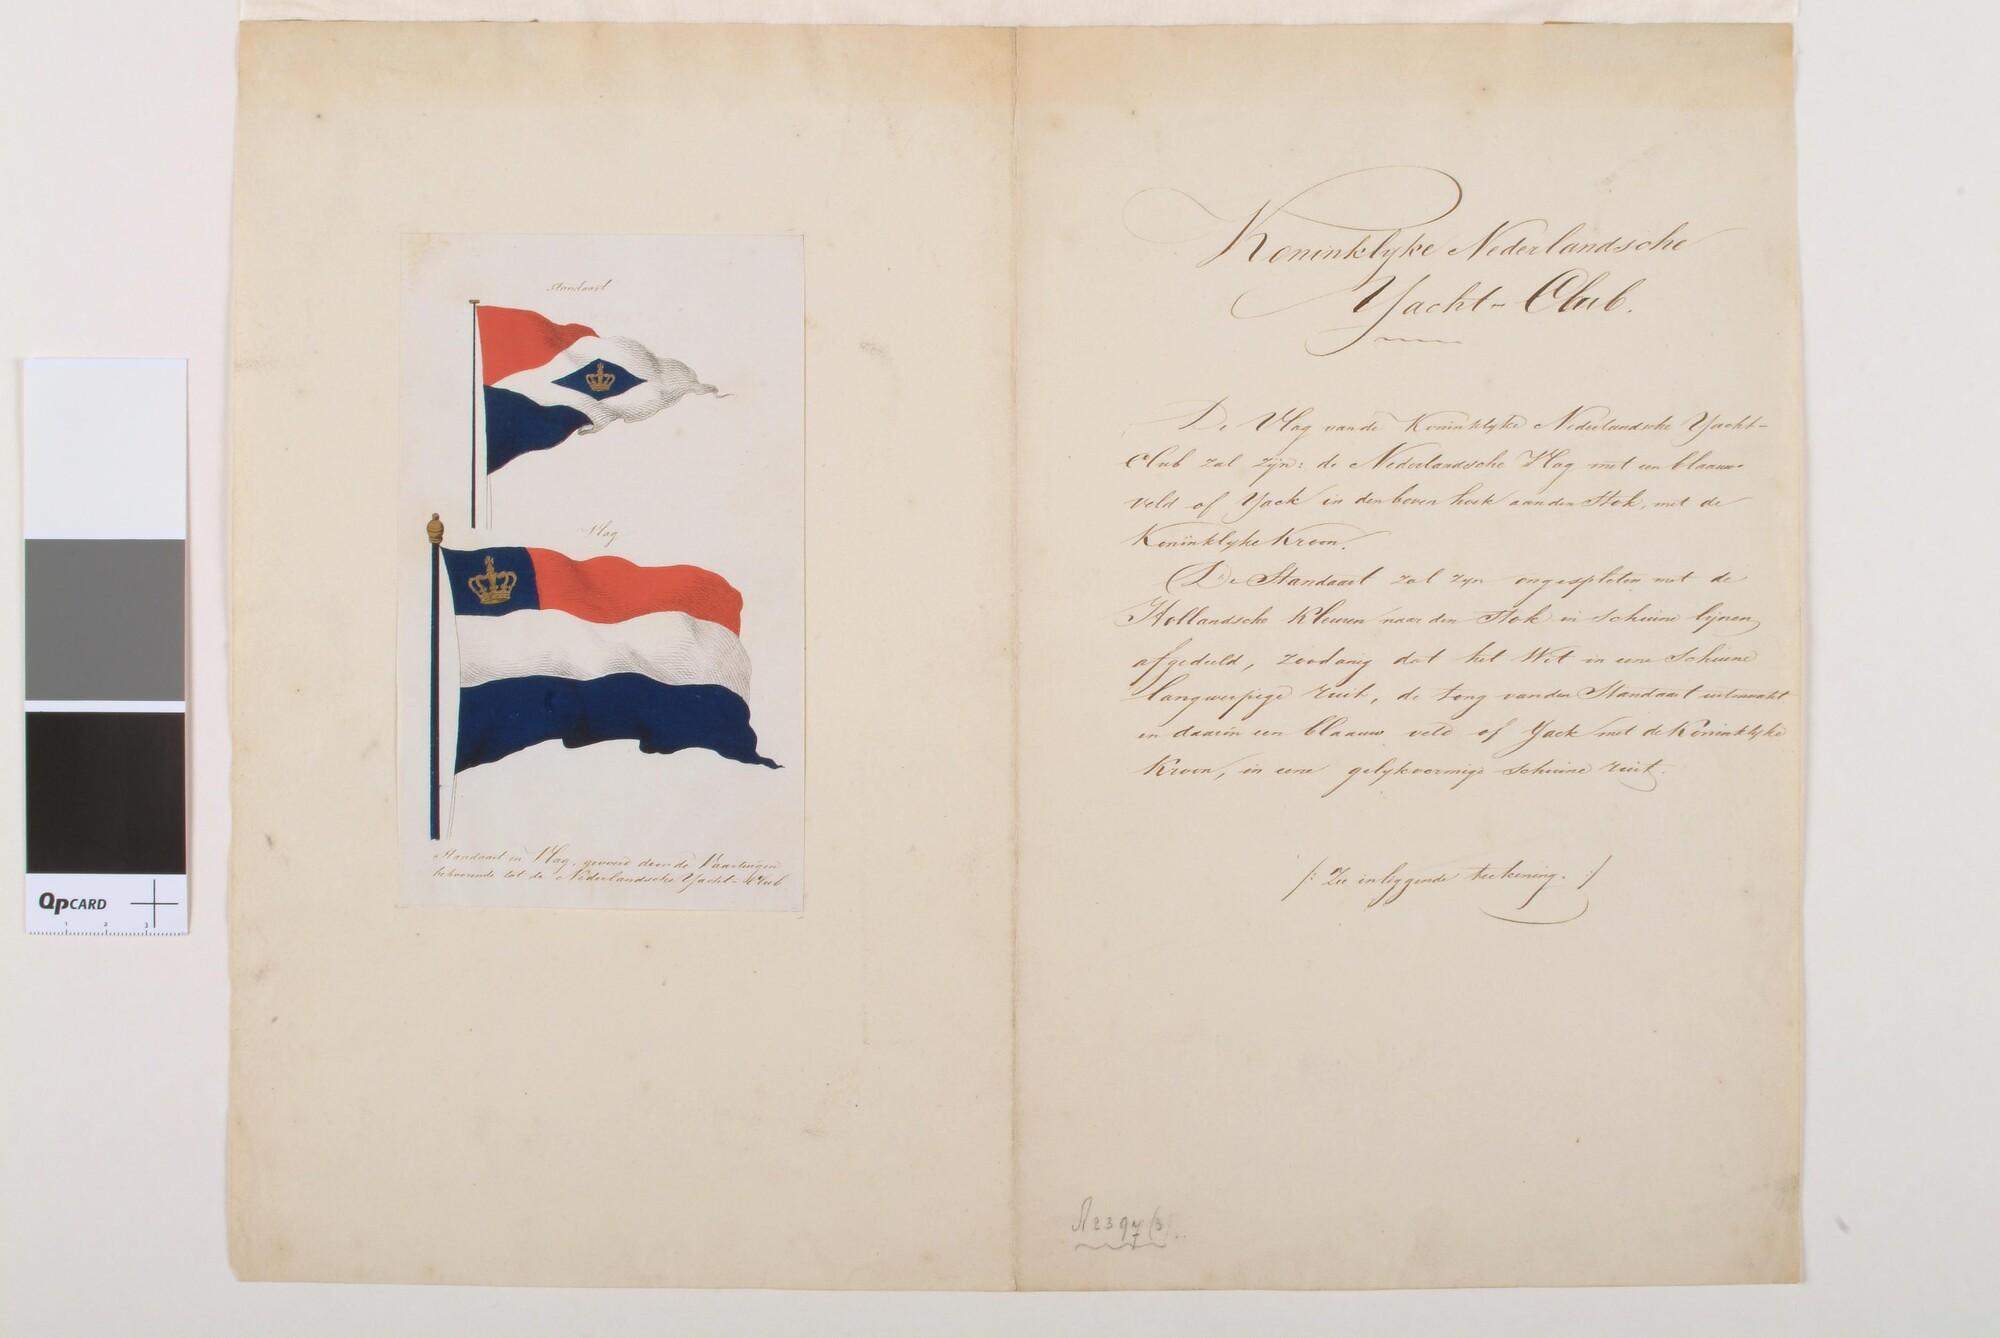 Standaart
Vlag
Standaart en Vlag, gevoerd door de Vaartuigen
behoorende tot de Nederlandsche Yacht-Club
Koninklyke Nederlandsche
Yacht-Club.
De Vlag van de Koninklyke Nederlandsche Yacht-
Club zal zijn: de Nederlandsche Vlag met een blaauw
veld of Yack in den boven hoek aan den Stok, met de
Koninklyke Kroon.
De Standaart zal zyn ongespleten met de
Hollandsche Kleuren naar den Stok in schuine lijnen
afgedeeld, zoodanig dat het Wit in eene Schuine
langwerpige ruit, de tong van den Standaart uitmaakt
en daarin een blaauw veld of Yack met de Koninklyke
Kroon, in eene gelykvormige schuine ruit.
/: Zie inliggende teekening. :/
A2397(3)
QPCARD
1 2 3